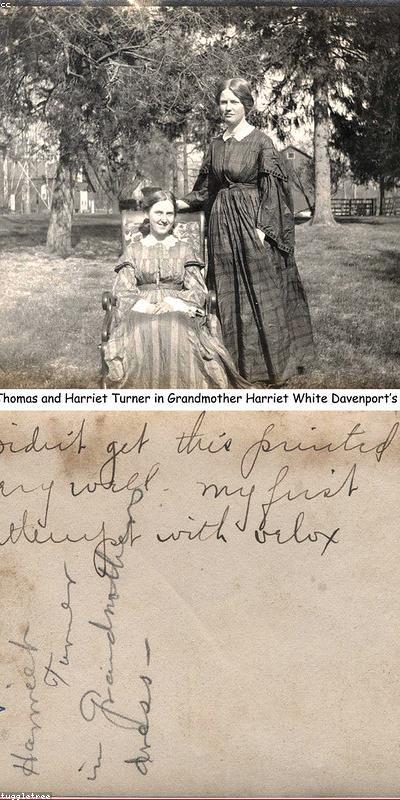 cc
Thomas and Harriet Turner in Grandmother Harriet White Davenport's
Didn't get this printed
very well. my first
attempt with velox
Harriet
Turner
in Grandmothers
dress—
tuggletree